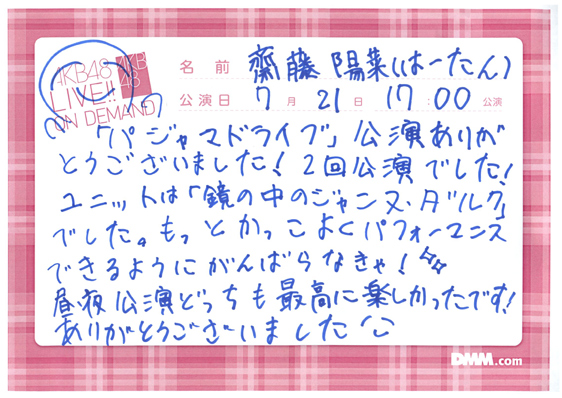 AKB48
LIVE!!
ON DEMAND
AKB
48
名前 齋藤陽菜(はーたん)
公演日 7月21日 17:00公演
「パジャマドライブ」公演ありが
とうございました!2回公演でした!
ユニットは「鏡の中のジャンヌ・ダルク」
でした。もっとかっこよくパフォーマンス
できるようにがんばらなきゃ!
昼夜公演どっちも最高に楽しかったです!
ありがとうございました
DMM.com